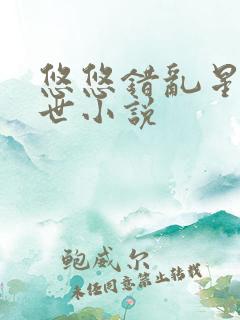 悠悠错乱星
世小说
鲍威尔
未经同意禁止转载